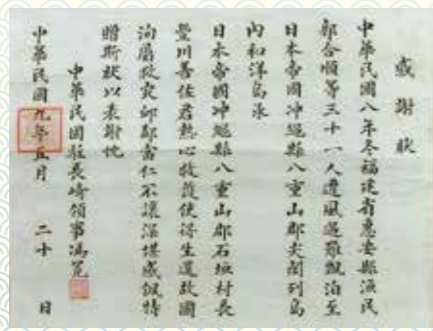 感謝狀
中華民國八年冬福建省惠安縣漁民
郭合順等三十一人遭風遇難飄泊至
日本帝國沖繩縣八重山郡尖閣列島
內和洋島承
日本帝國沖繩縣八重山郡石垣村
豊川善佐君熱心救護使得生還故國
洵屬救災卹鄰當仁不讓深堪感佩特
贈斯狀以表謝忱
中華民國駐長崎領事馮冕
中華民國九年五月 二十 日